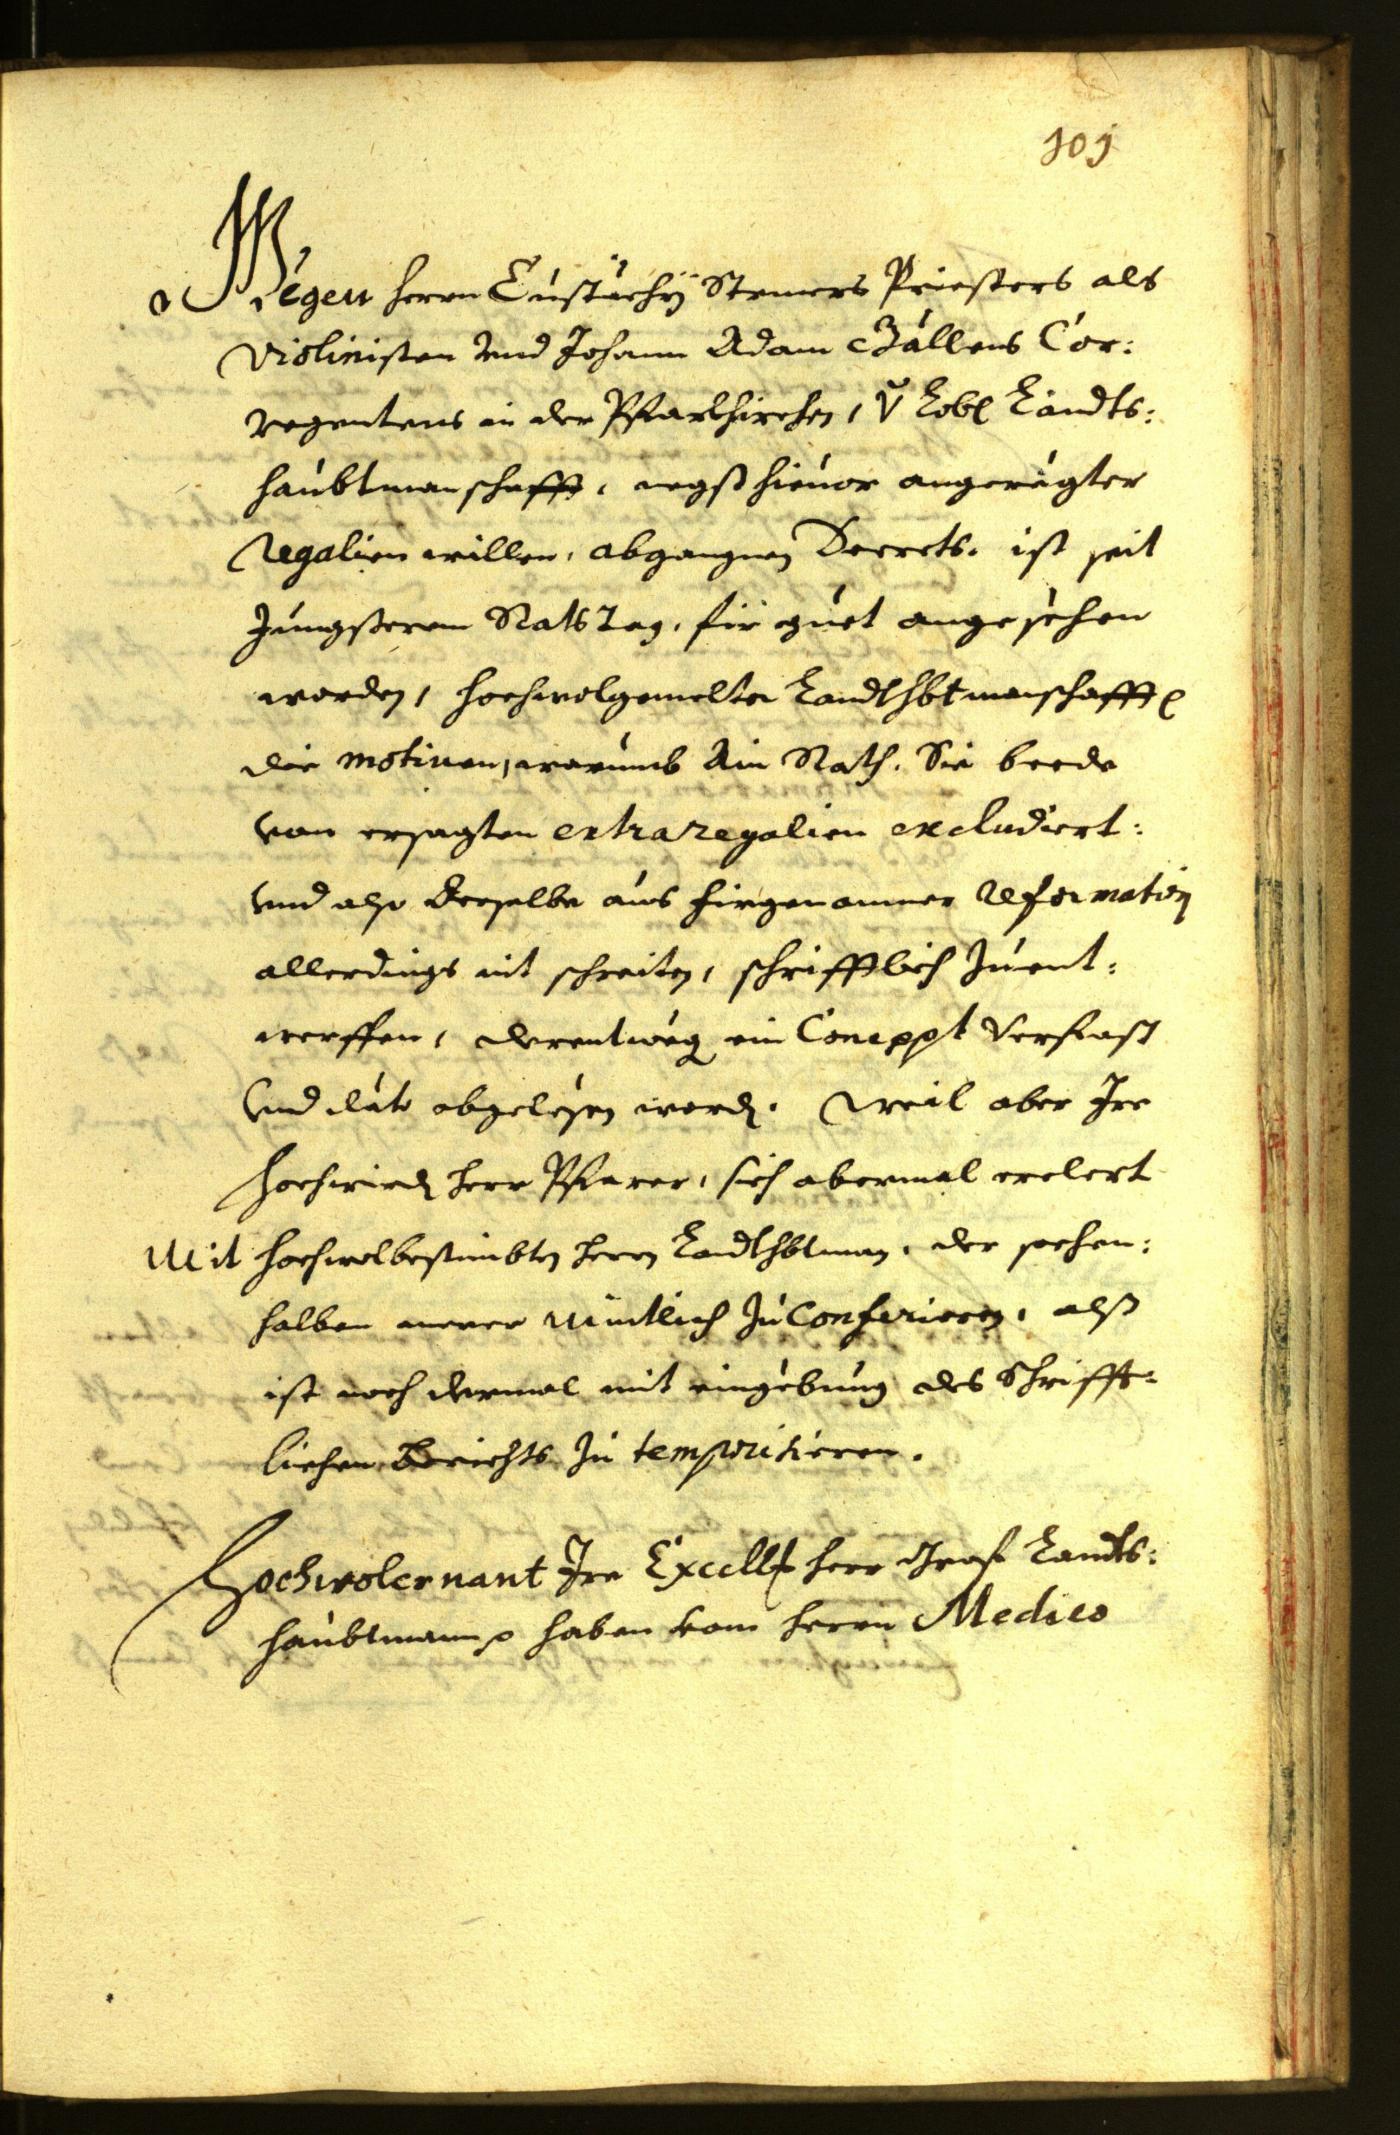 101
Wegen herrn Eustachÿ Stemers Priesters als
Violinisten vnd Johann Adam Gällens Cor:
regentens in der Pfarkhirchen, V Lobl Landts:
haubtmanschafft, negst hieuor angeregter
Regalien willen, abgangnen Decrets. ist seit
Jungsteren Rats Tag, für guet angesehen
worden, hochwolgemelter Landtshbtmanschafft
die motiuen, warumb Ain Rath. Sie beede
von ersagten extraregalien excludiert:
vnd also derselbe aus hirgenomner Reformation
allerdings nit schreiten, schrifftlich zuent:
werffen, derentweg ein Concppt verfast
vnd dato abgelesen word. Weil aber Ire
Hochwird herr Pfarrer, sich abermal erclert
Mit hochwolbestimbten herrn Landtshbtman, der sachen:
halben merer Mintlich zu Conferieren, alß
ist noch dermal mit eingebung des Schrifft:
lichen Berichts zu temporisieren.
Hochwolernant Ire Excell herr Graf Landts:
haubtmann haben vom herrn Medico